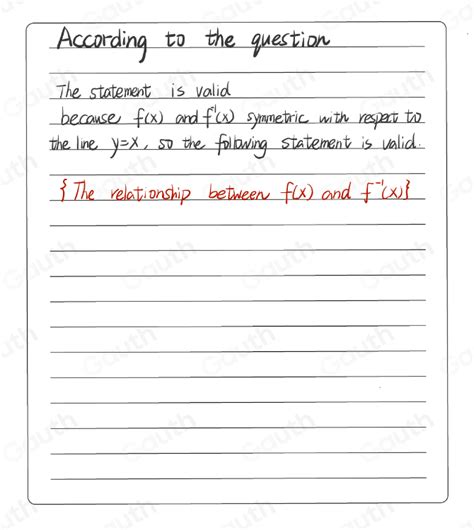 According to the question
The statement is valid
because f(x) and f⁻¹(x) symmetric with respect to
the line y=x, so the following statement is valid.
{The relationship between f(x) and f⁻¹(x)}
Gauth